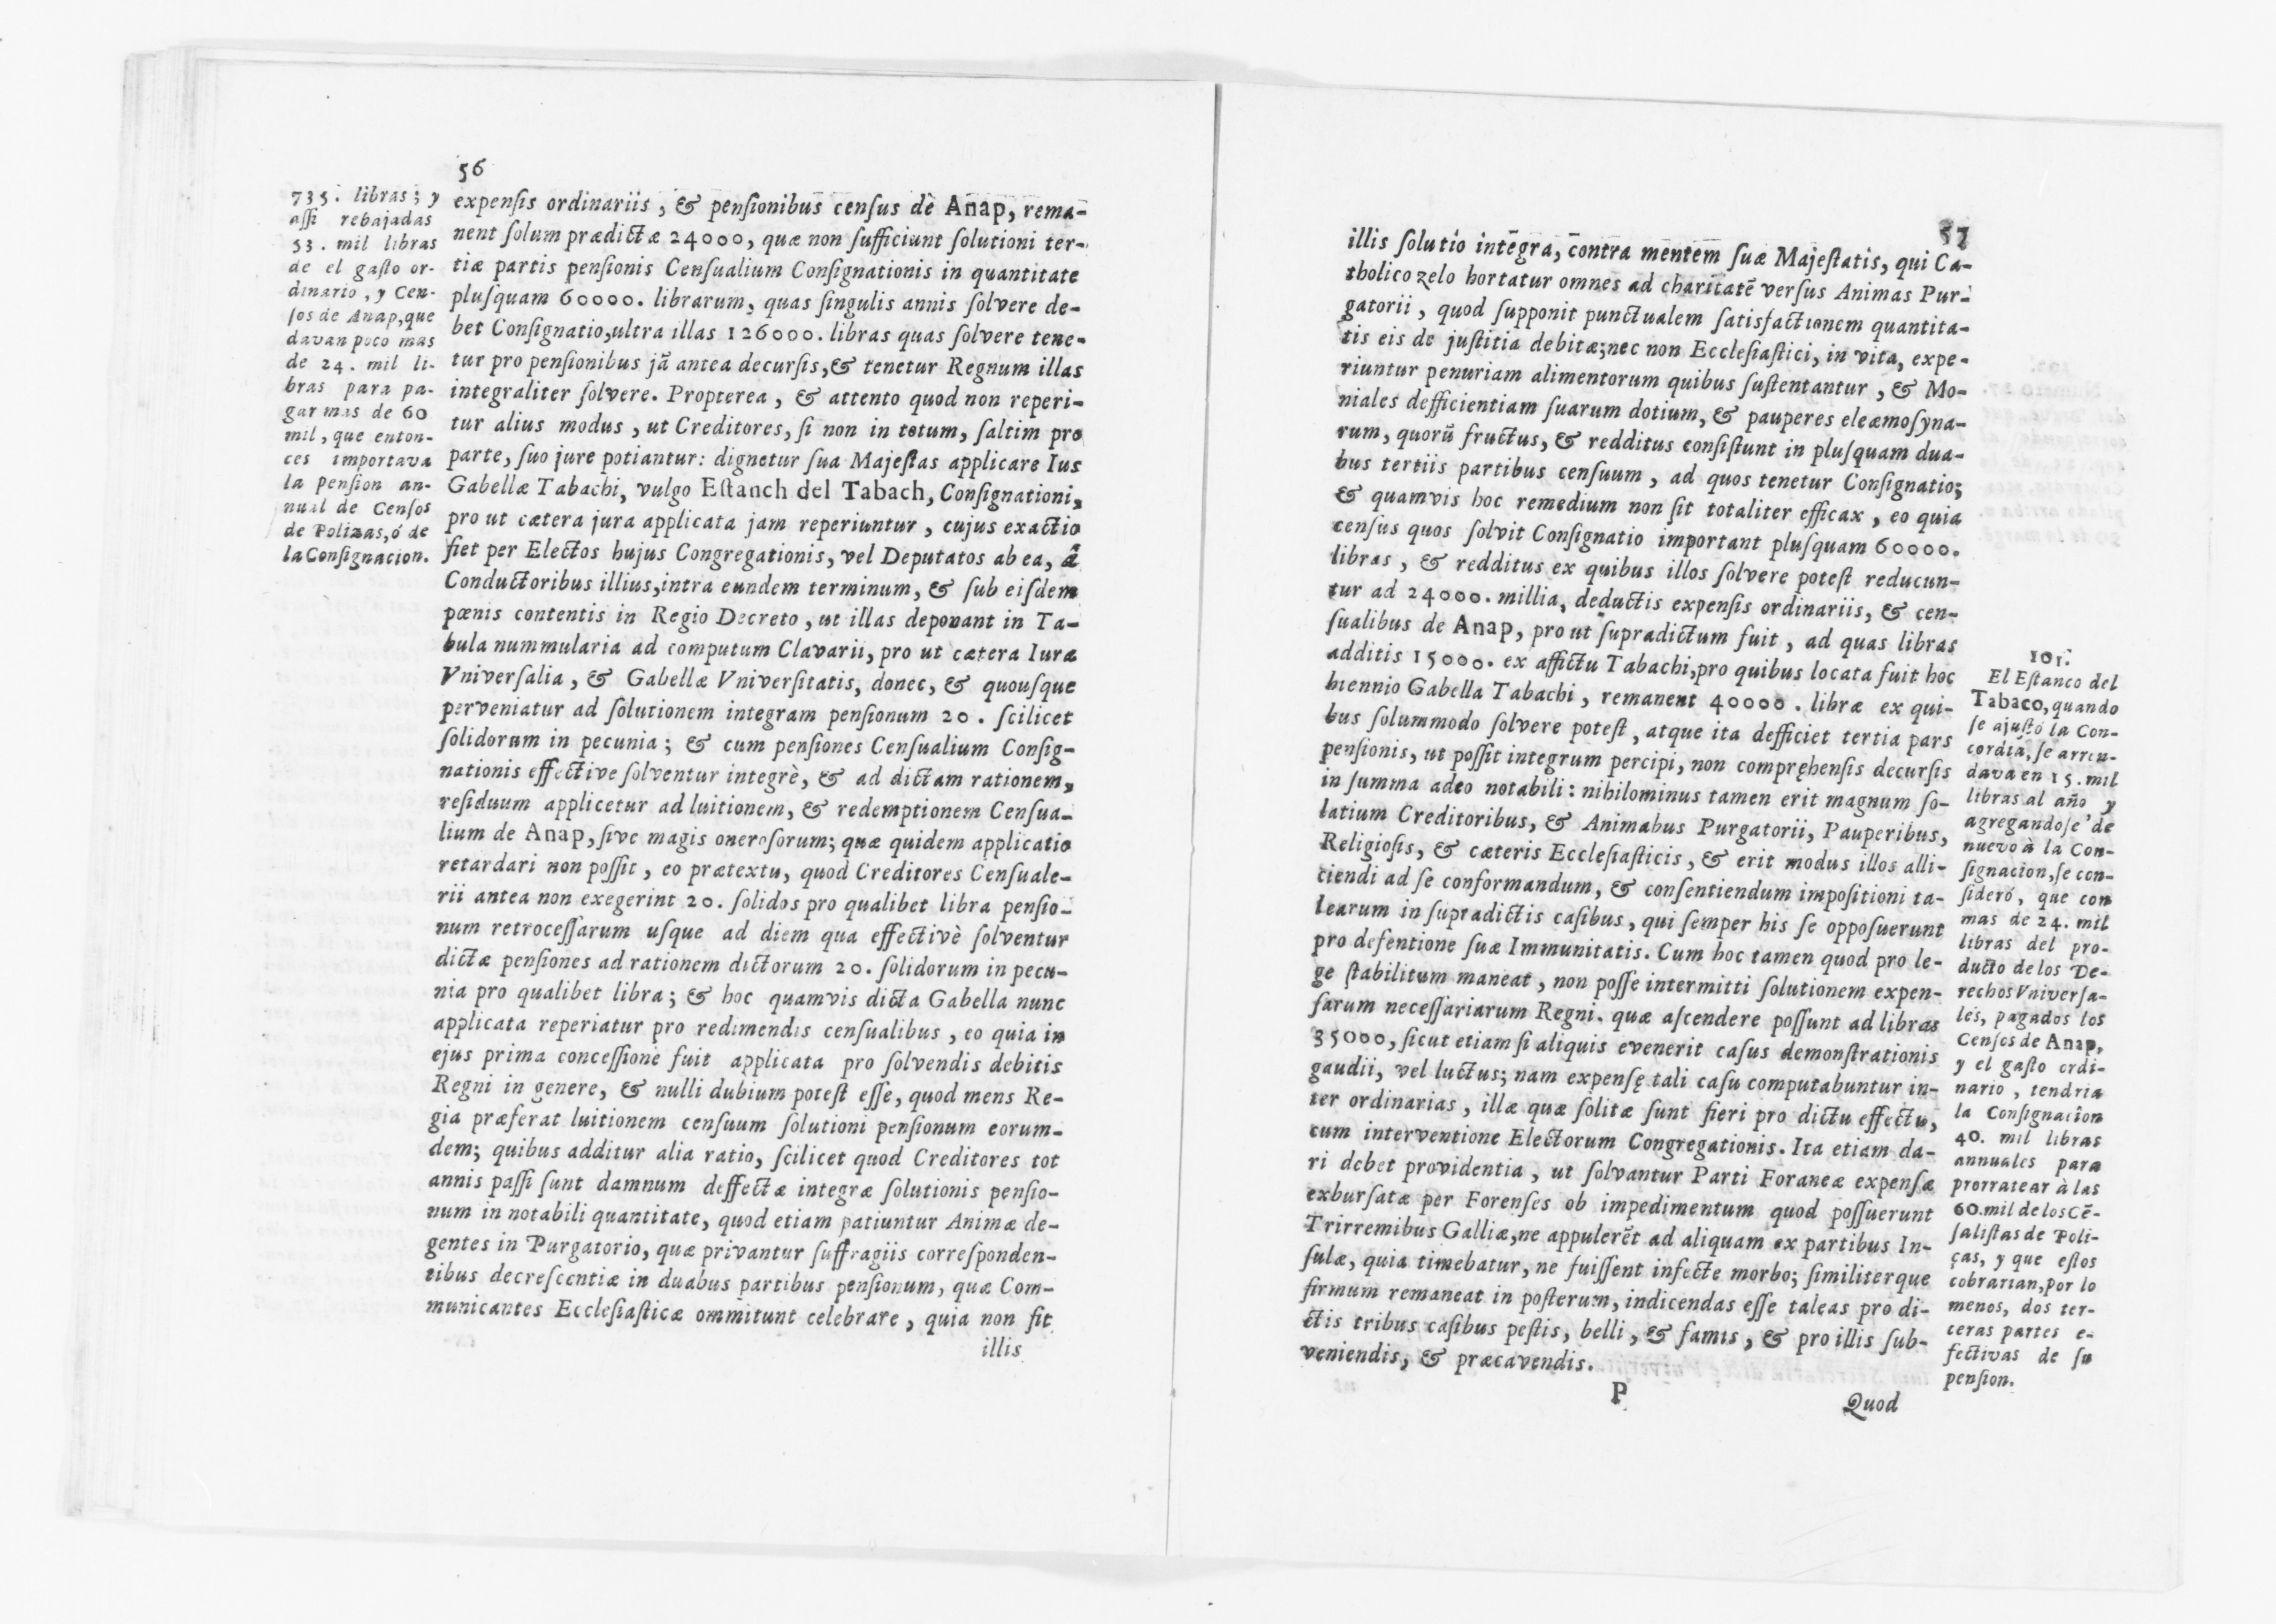 56
735. libras; y
assi rebajadas
53. mil libras
de el gasto or-
dinario, y Cen-
sos de Anap, que
davan poco mas
de 24. mil li-
bras para pa-
gar mas de 60
mil, que enton-
ces importava
la pension an-
nual de Censos
de Polizas, ó de
la Consignacion.
expensis ordinariis, & pensionibus census de Anap, rema-
nent solum prædictæ 24000, quæ non sufficiunt solutioni ter-
tiæ partis pensionis Censualium Consignationis in quantitate
plusquam 60000. librarum, quas singulis annis solvere de-
bet Consignatio, ultra illas 126000. libras quas solvere tene-
tur pro pensionibus jã antea decursis, & tenetur Regnum illas
integraliter solvere. Propterea, & attento quod non reperi-
tur alius modus, ut Creditores, si non in totum, saltim pro
parte, suo jure potiantur: dignetur sua Majestas applicare Ius
Gabellæ Tabachi, vulgo Estanch del Tabach, Consignationi,
pro ut cætera jura applicata jam reperiuntur, cujus exactio
fiet per Electos hujus Congregationis, vel Deputatos ab ea, â
Conductoribus illius, intra eundem terminum, & sub eisdem
pœnis contentis in Regio Decreto, ut illas deponant in Ta-
bula nummularia ad computum Clavarii, pro ut cætera Iura
Vniversalia, & Gabellæ Vniversitatis, donec, & quousque
perveniatur ad solutionem integram pensionum 20. scilicet
solidorum in pecunia; & cum pensiones Censualium Consig-
nationis effective solventur integrè, & ad dictam rationem,
residuum applicetur ad luitionem, & redemptionem Censua-
lium de Anap, sive magis onerosorum; quæ quidem applicatio
retardari non possit, eo prætextu, quod Creditores Censuale-
rii antea non exegerint 20. solidos pro qualibet libra pensio-
num retrocessarum usque ad diem qua effectivè solventur
dictæ pensiones ad rationem dictorum 20. solidorum in pecu-
nia pro qualibet libra; & hoc quamvis dicta Gabella nunc
applicata reperiatur pro redimendis censualibus, eo quia in
ejus prima concessione fuit applicata pro solvendis debitis
Regni in genere, & nulli dubium potest esse, quod mens Re-
gia præferat luitionem censuum solutioni pensionum eorum-
dem; quibus additur alia ratio, scilicet quod Creditores tot
annis passi sunt damnum deffectæ integræ solutionis pensio-
num in notabili quantitate, quod etiam patiuntur Animæ de-
gentes in Purgatorio, quæ privantur suffragiis corresponden-
tibus decrescentiæ in duabus partibus pensionum, quæ Com-
municantes Ecclesiasticæ ommitunt celebrare, quia non fit
illis
57
illis solutio intēgra, contra mentem suæ Majestatis, qui Ca-
tholico zelo hortatur omnes ad charitatē versus Animas Pur-
gatorii, quod supponit punctualem satisfactionem quantita-
tis eis de justitia debitæ; nec non Ecclesiastici, in vita, expe-
riuntur penuriam alimentorum quibus sustentantur, & Mo-
niales defficientiam suarum dotium, & pauperes eleæmosyna-
rum, quorũ fructus, & redditus consistunt in plusquam dua-
bus tertiis partibus censuum, ad quos tenetur Consignatio;
& quamvis hoc remedium non sit totaliter efficax, eo quia
census quos solvit Consignatio important plusquam 60000.
libras, & redditus ex quibus illos solvere potest reducun-
tur ad 24000. millia, deductis expensis ordinariis, & cen-
sualibus de Anap, pro ut supradictum fuit, ad quas libras
additis 15000. ex affictu Tabachi, pro quibus locata fuit hoc
biennio Gabella Tabachi, remanent 40000. libræ ex qui-
bus solummodo solvere potest, atque ita defficiet tertia pars
pensionis, ut possit integrum percipi, non compręhensis decursis
in summa adeo notabili: nihilominus tamen erit magnum so-
latium Creditoribus, & Animabus Purgatorii, Pauperibus,
Religiosis, & cæteris Ecclesiasticis, & erit modus illos alli-
ciendi ad se conformandum, & consentiendum impositioni ta-
learum in supradictis casibus, qui semper his se opposuerunt
pro defentione suæ Immunitatis. Cum hoc tamen quod pro le-
ge stabilitum maneat, non posse intermitti solutionem expen-
sarum necessariarum Regni. quæ ascendere possunt ad libras
35000, sicut etiam si aliquis evenerit casus demonstrationis
gaudii, vel luctus; nam expensę tali casu computabuntur in-
ter ordinarias, illæ quæ solitæ sunt fieri pro dictu effectu,
cum interventione Electorum Congregationis. Ita etiam da-
ri debet providentia, ut solvantur Parti Foraneæ expensæ
exbursatæ per Forenses ob impedimentum quod possuerunt
Trirremibus Galliæ, ne appulerēt ad aliquam ex partibus In-
sulæ, quia timebatur, ne fuissent infecte morbo; similiterque
firmum remaneat in posterum, indicendas esse taleas pro di-
ctis tribus casibus pestis, belli, & famis, & pro illis sub-
veniendis, & præcavendis.
P
Quod
101.
El Estanco del
Tabaco, quando
se ajustó la Con-
cordia, se arren-
dava en 15. mil
libras al año y
agregandose de
nuevo à la Con-
signacion, se con-
sideró, que con
mas de 24. mil
libras del pro-
ducto de los De-
rechos Vniversa-
les, pagados los
Censos de Anap,
y el gasto ordi-
nario, tendria
la Consignacion
40. mil libras
annuales para
prorratear à las
60. mil de los Cē-
salistas de Poli-
ças, y que estos
cobrarian, por lo
menos, dos ter-
ceras partes e-
fectivas de su
pension.